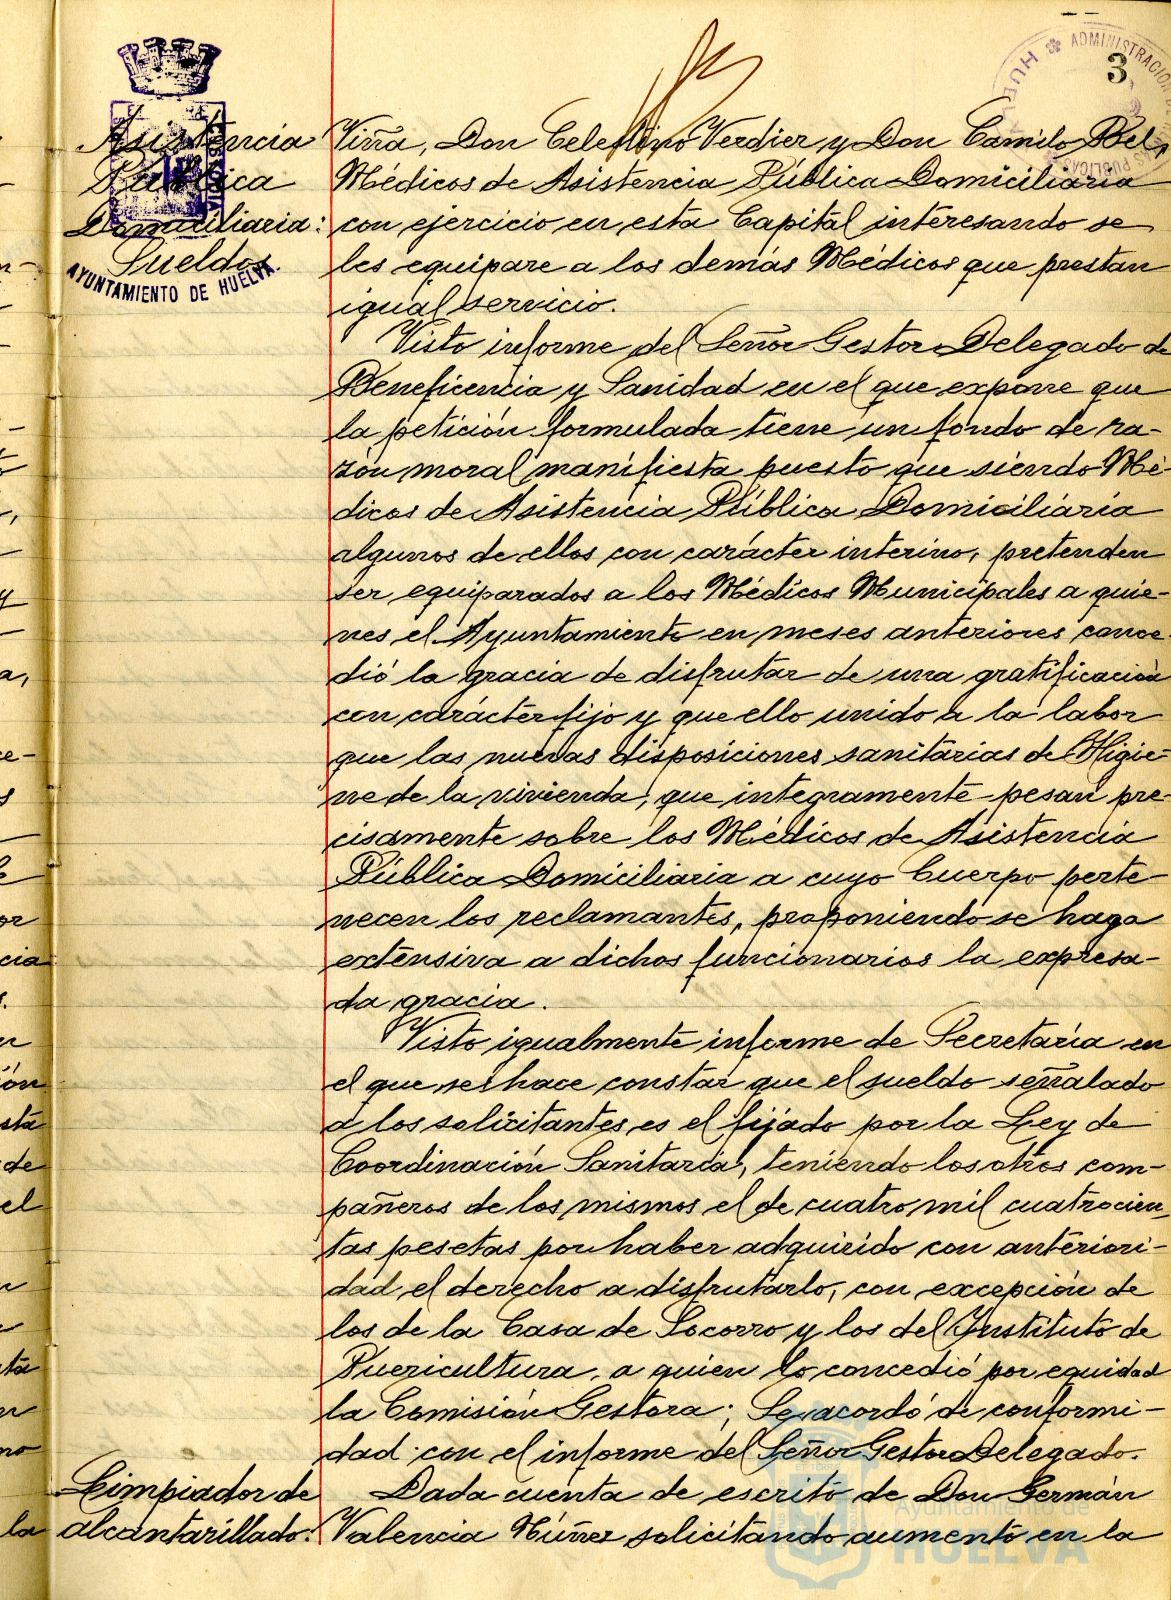 ADMINISTRACION
3
Asistencia
Pública
Domiciliaria:
Sueldos.
AYUNTAMIENTO DE HUELVA
Viña, Don Celestino Verdier y Don Camilo Bel,
Médicos de Asistencia Pública Domiciliaria
con ejercicio en esta Capital interesando se
les equipare a los demás Médicos que prestan
igual servicio.
Visto informe del Señor Gestor Delegado de
Beneficencia y Sanidad en el que expone que
la petición formulada tiene un fondo de ra-
zón moral manifiesta puesto que siendo Mé-
dicos de Asistencia Pública Domiciliaria
algunos de ellos con carácter interino, pretenden
ser equiparados a los Médicos Municipales a quie-
nes el Ayuntamiento en meses anteriores conce-
dió la gracia de disfrutar de una gratificación
con carácter fijo y que ello unido a la labor
que las nuevas disposiciones sanitarias de Higie-
ne de la vivienda, que integramente pesan pre-
cisamente sobre los Médicos de Asistencia
Pública Domiciliaria a cuyo Cuerpo perte-
necen los reclamantes, proponiendo se haga
extensiva a dichos funcionarios la expresa-
da gracia.
Visto igualmente informe de Secretaría en
el que se hace constar que el sueldo señalado
a los solicitantes es el fijado por la Ley de
Coordinación Sanitaria, teniendo los otros com-
pañeros de los mismos el de cuatro mil cuatrocien-
tas pesetas por haber adquirido con anteriori-
dad el derecho a disfrutarlo, con excepción de
los de la Casa de Socorro y los del Instituto de
Puericultura, a quien lo concedió por equidad
la Comisión Gestora; Se acordó de conformi-
dad con el informe del Señor Gestor Delegado.
Limpiador de
alcantarillado:
Dada cuenta de escrito de Don Germán
Valencia Núñez solicitando aumento en la
Ayuntamiento de
HUELVA